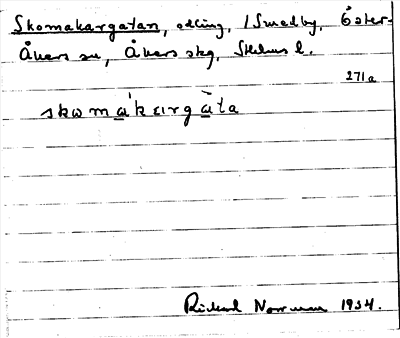 Skomakargatan, odling, i Smedby, Öster-
Åkers sn, Åkers skg, Sthlms l.
271a
skωma̲kεrga̲ta
Rickard Norrman 1934.